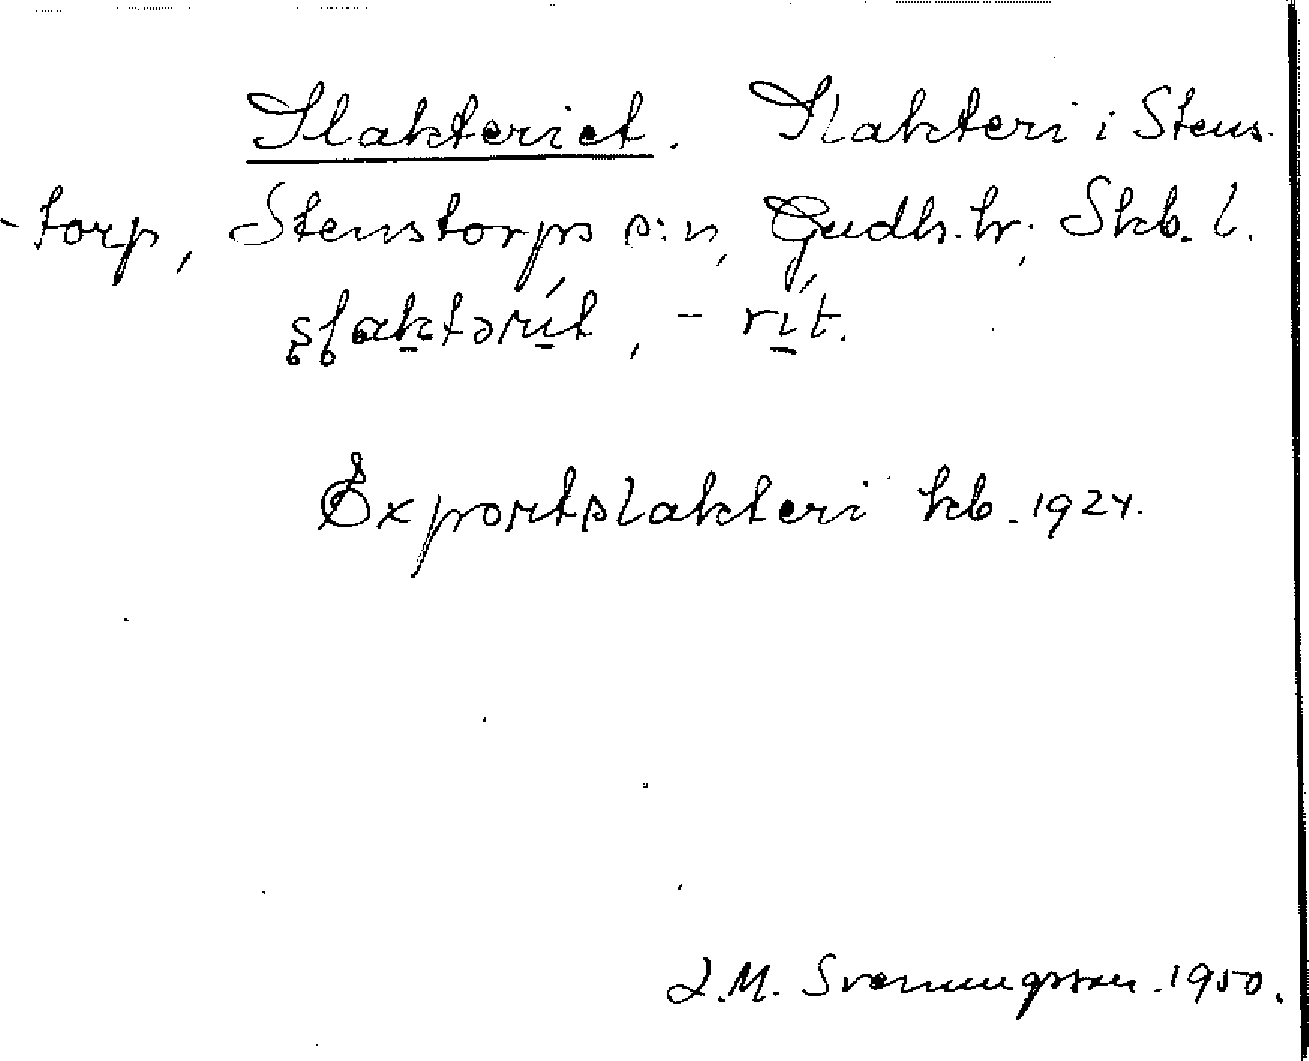 Slakteriet. Slakteri i Stens-
-torp, Stenstorps s:n, Gudh. hr; Skb. l.
slaktərit, -rit.
Exportslakteri kb. 1924.
J.M. Svenungsson 1950.